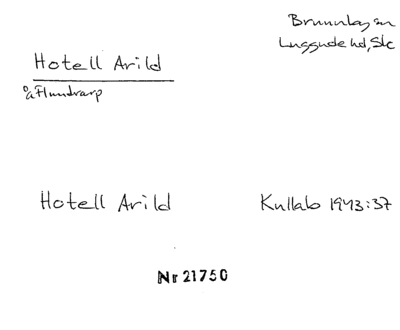 Brunnby sn
Luggude hd, Skc
Hotell Arild
å Flundrarp
Hotell Arild
Kullabo 1943:37
Nr 21750